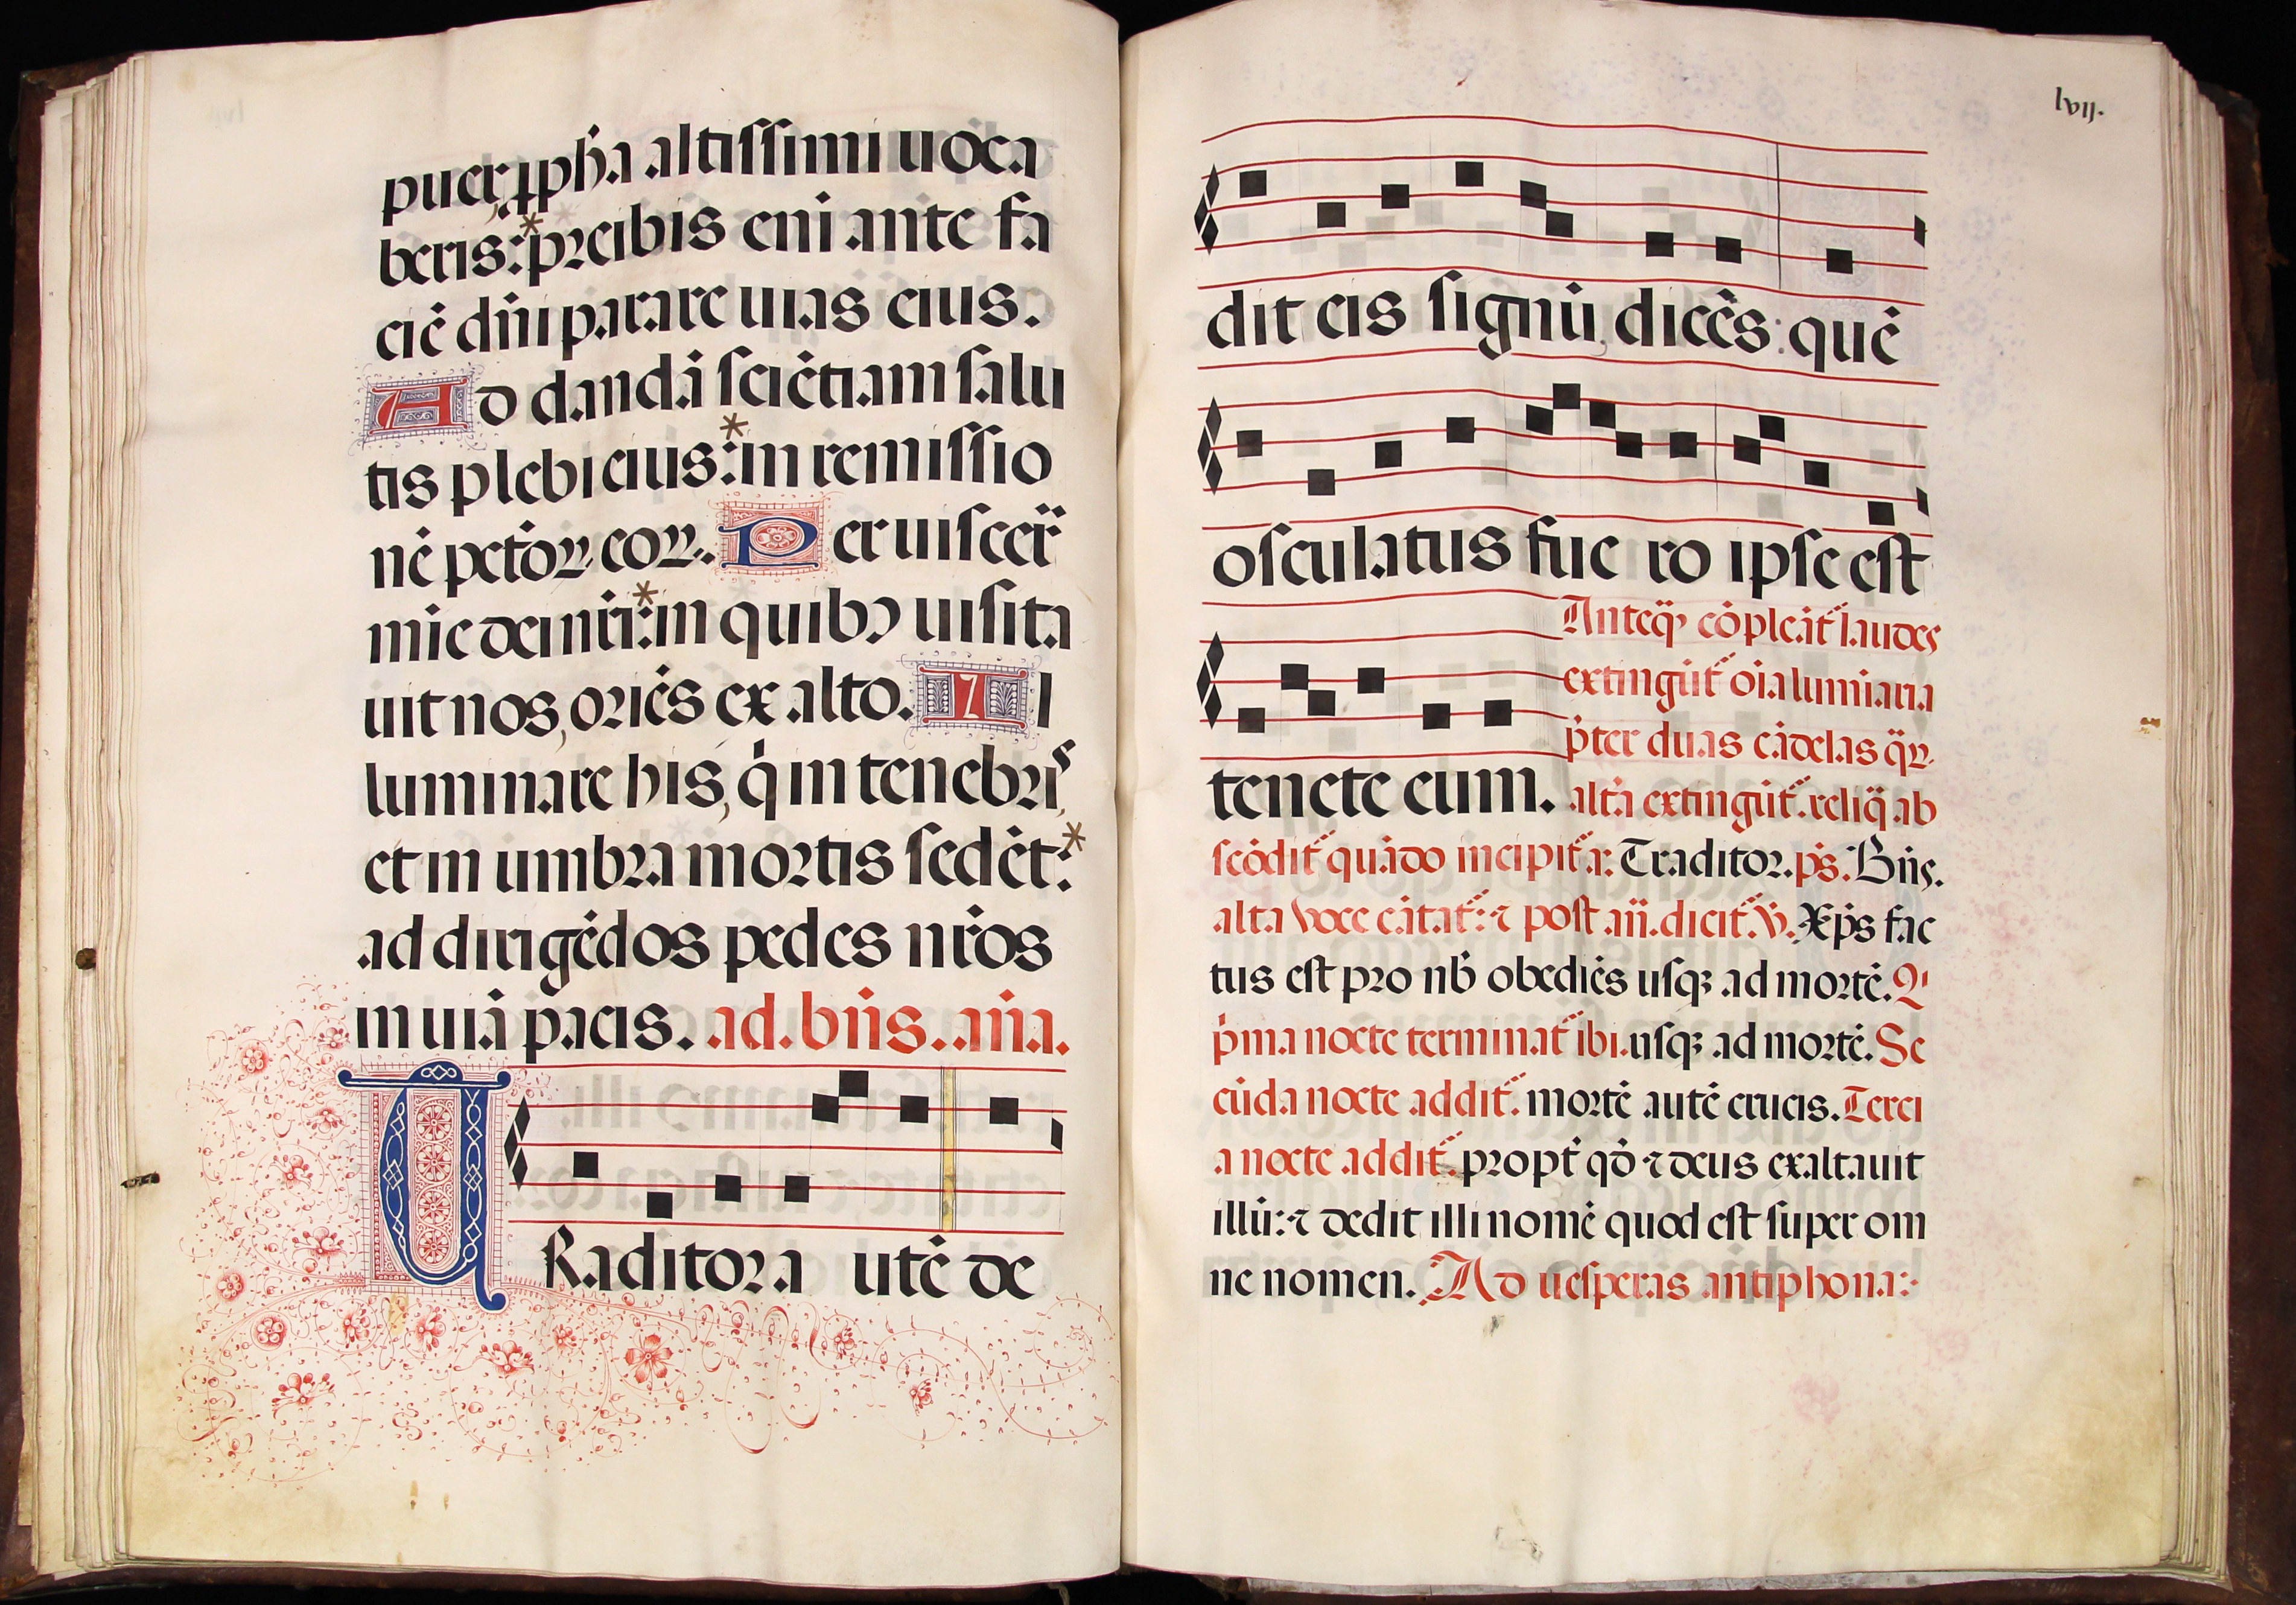 puer, ꝓph̄a altissimi uoca
beris:* precibis eni ante fa
ciē dn̄i parare uias eius.
Ad dandā sciētiam salu
tis plebi eius:* in remissio
nē pctōꝝ eoꝝ. Per uiscer̄
mie dei nr̄i:* in quibꝰ uisita
uit nos, oriēs ex alto. Il
luminare his, q̇ in tenebris,
et in umbra mortis sedēt:*
ad dirigēdos pedes nr̄os
in uiā pacis. ad. bn̄s. an̄a.
Traditor a utē de
lvij.
dit eis signū, dicēs: quē
osculatus fue ro ipse est
tenete eum.
Anteq̄ȝ cōpleāt᷑ laudes
extingūt᷑ oīa luminaria
p̄ter duas cādelas q̄ꝝ
altā extingūt᷑. reliq̄ ab
scōdit᷑ quādo incipit᷑ a: Traditor. ps. Bn̄s.
alta voce cātat᷑: ⁊ post an̄. dicit᷑. ℣. Xp̄s fac
tus est pro nb̄ obediēs usqȝ ad mortē. Q'
p̄ma nocte terminat᷑ ibi. usqȝ ad mortē. Se
cūda nocte addit᷑. mortē autē crucis. Terci
a nocte addit᷑. propt̄ qd̄ ⁊ deus exaltauit
illū: ⁊ dedit illi nomē quod est super om
ne nomen. Ad uesperas antiphona: